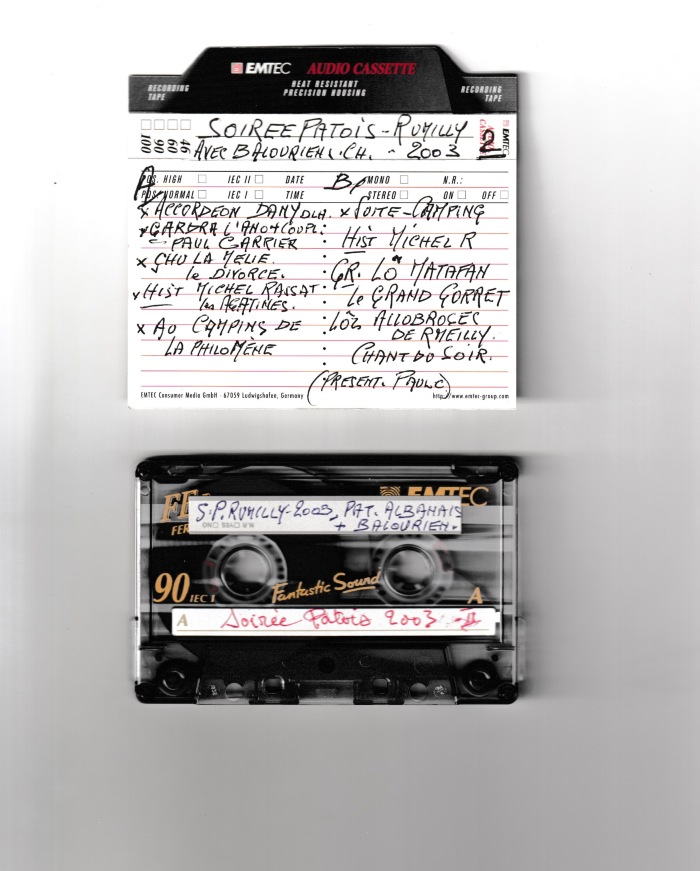 EMTEC AUDIO CASSETTE
RECORDING TAPE
HEAT RESISTANT
PRECISION HOUSING
RECORDING TAPE
100 90 60 46
SOIREE PATOIS - RUMILLY
AVEC BALOURIEN. CH. - 2003
EMTEC
A
POS. HIGH IEC II DATE
POS. NORMAL IEC I TIME
B
MONO N.R.:
STEREO ON OFF
x ACCORDEON DANY
x GARDRA L'ANO + COUPL:
PAUL CARRIER
x CHU LA MELIE.
le DIVORCE.
x HIST MICHEL RASSAT
les AGATINES.
x AU CAMPING DE
LA PHILOMÈNE
x SUITE - CAMPING
: HIST MICHEL R
: GR. LO MATAFAN
: le GRAND GORRET
: LÔS ALLOBROGES
DE RMEILLY.
: CHANT DU SOIR.
(PRESENT. PAUL C)
EMTEC Consumer Media GmbH · 67059 Ludwigshafen, Germany
http://www.emtec-group.com
EMTEC
S.P. RUMILLY-2003_PAT. ALBANAIS
+ BALOURIEN.
N.R. □YES □NO
90 IEC I
Fantastic Sound
A
A Soirée Patois 2003 - II